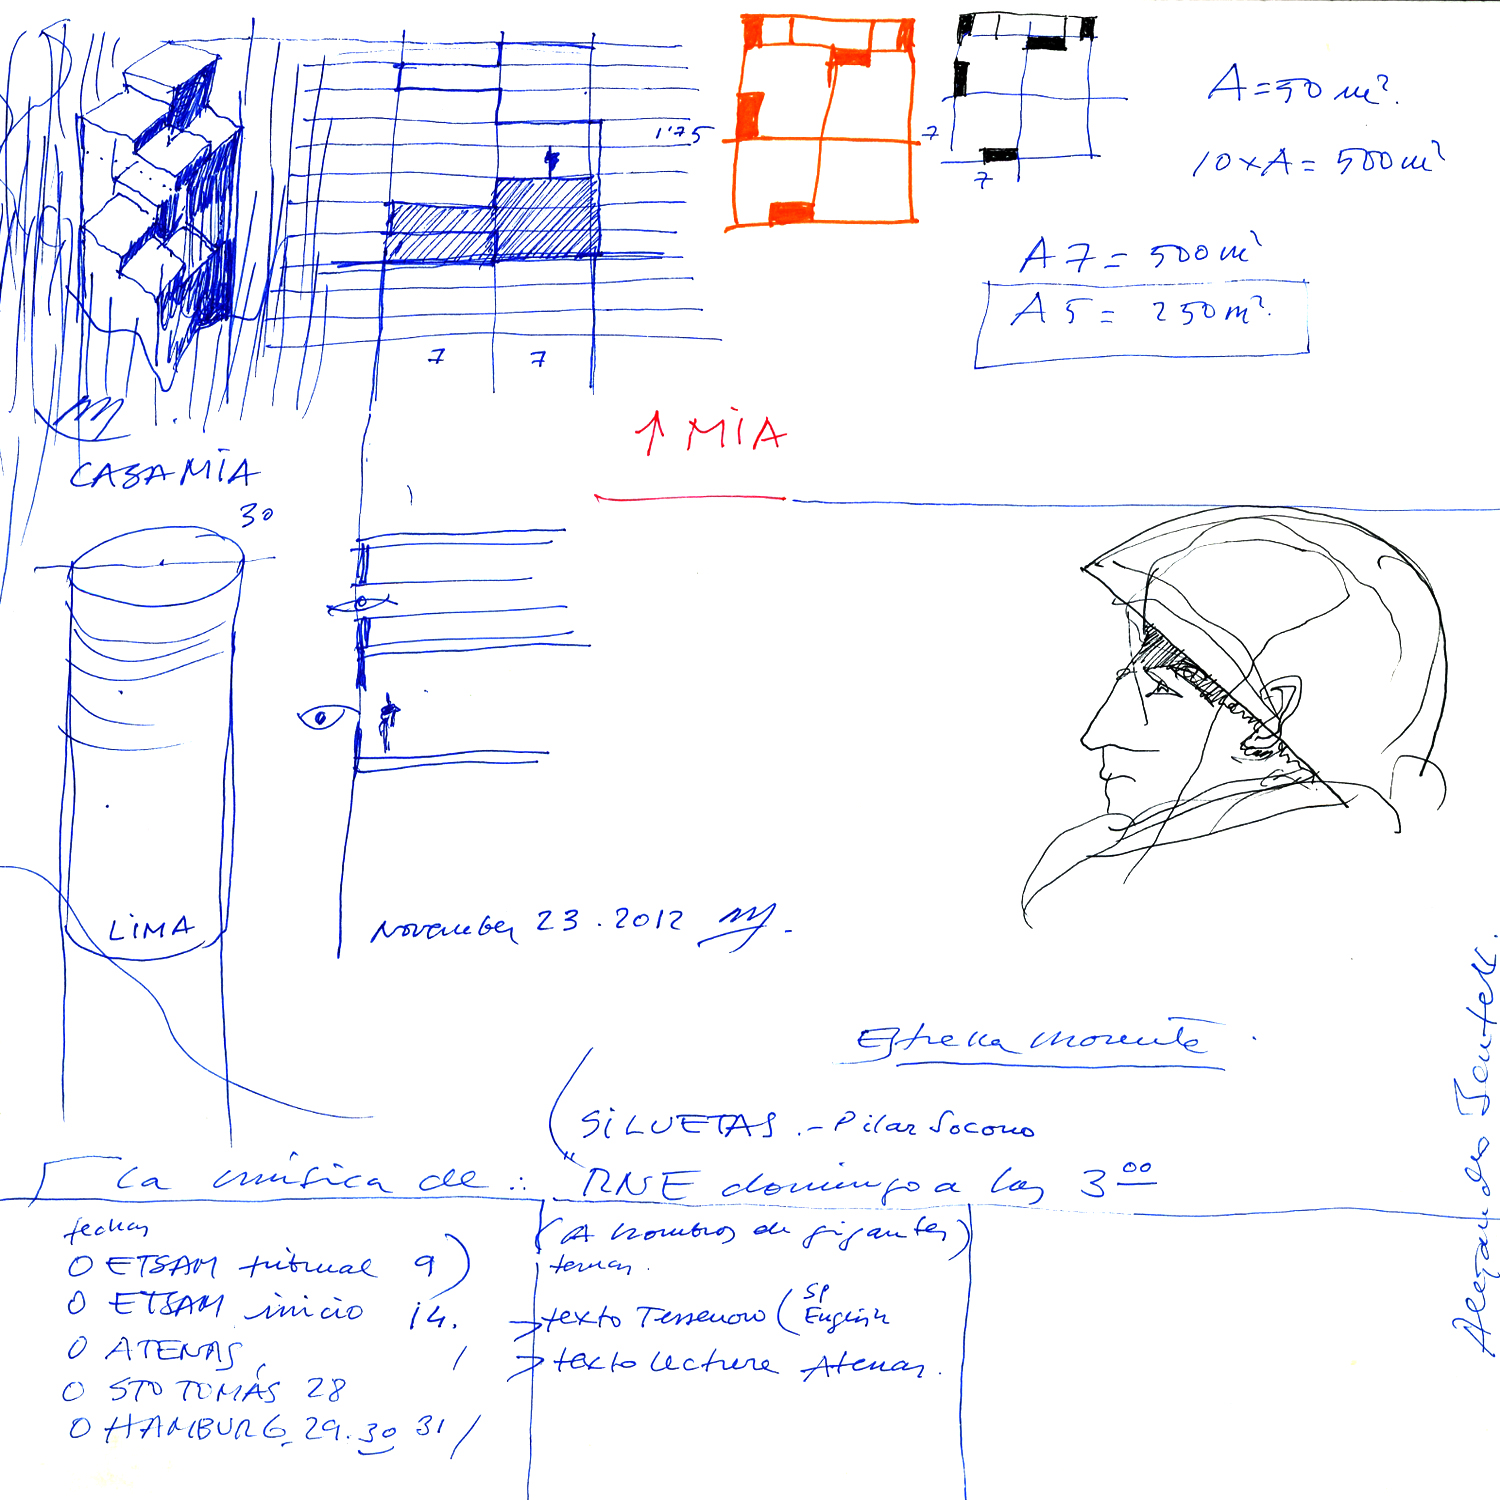 1'75
7
7
A = 50 m².
10 x A = 500 m²
A 7 = 500 m²
A 5 = 250 m².
7 7
↑ MIA
CASA MIA
30
LIMA
November 23 . 2012
Estrella Morente
SILUETAS .- Pilar Socorro
La música de : RNE domingo a las 3 00
fechas
O ETSAM tribunal 9)
O ETSAM inicio 14.
O ATENAS /
O STO TOMÁS 28
O HAMBURG 29. 30 31 /
(A hombros de gigantes)
temas.
→ texto Tessenow ( SP
English
→ texto lecture Atenas.
Alejandro